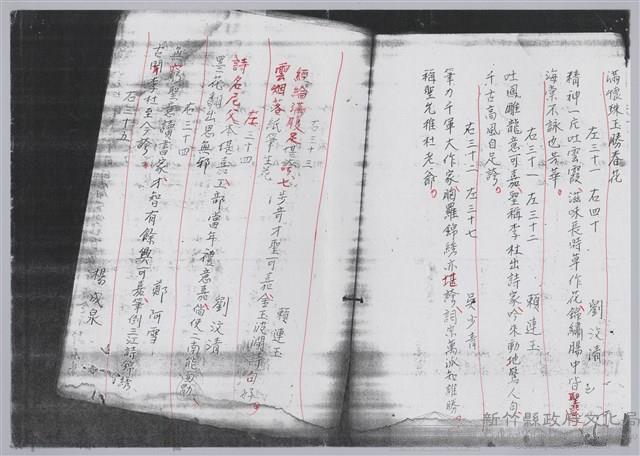 滿懷珠玉勝春花
左三十一 右四十 劉汶清
精神一度吐雲霞 滋味長時筆作花 錦繡腸中皆聖
海棠不詠也無華
右三十一 左三十二 賴連玉
吐鳳雕龍意可嘉 聖稱李杜出詩家 吟來動地驚人句
千古高風自足誇
右三十一 左三十七 吳少青
筆力千軍大作家 胸羅錦綉亦堪誇 詞宗萬派知誰勝
稱聖先推杜老爺
右三十三 賴連玉
經綸滿腹足
雲烟落紙筆生花 七步奇才聖可嘉 金玉波瀾尋句好
左三十四 劉汶清
詩名尼父本堪嘉 工部當年禮意嘉 倘使二南能
墨花翻出思無邪
右三十四 鄭阿雪
無 聖意讀書家 才智有餘興可嘉 筆倒三江詩錦綉
古聞李杜至今誇
右三十五 楊成泉
新竹縣政府文化局